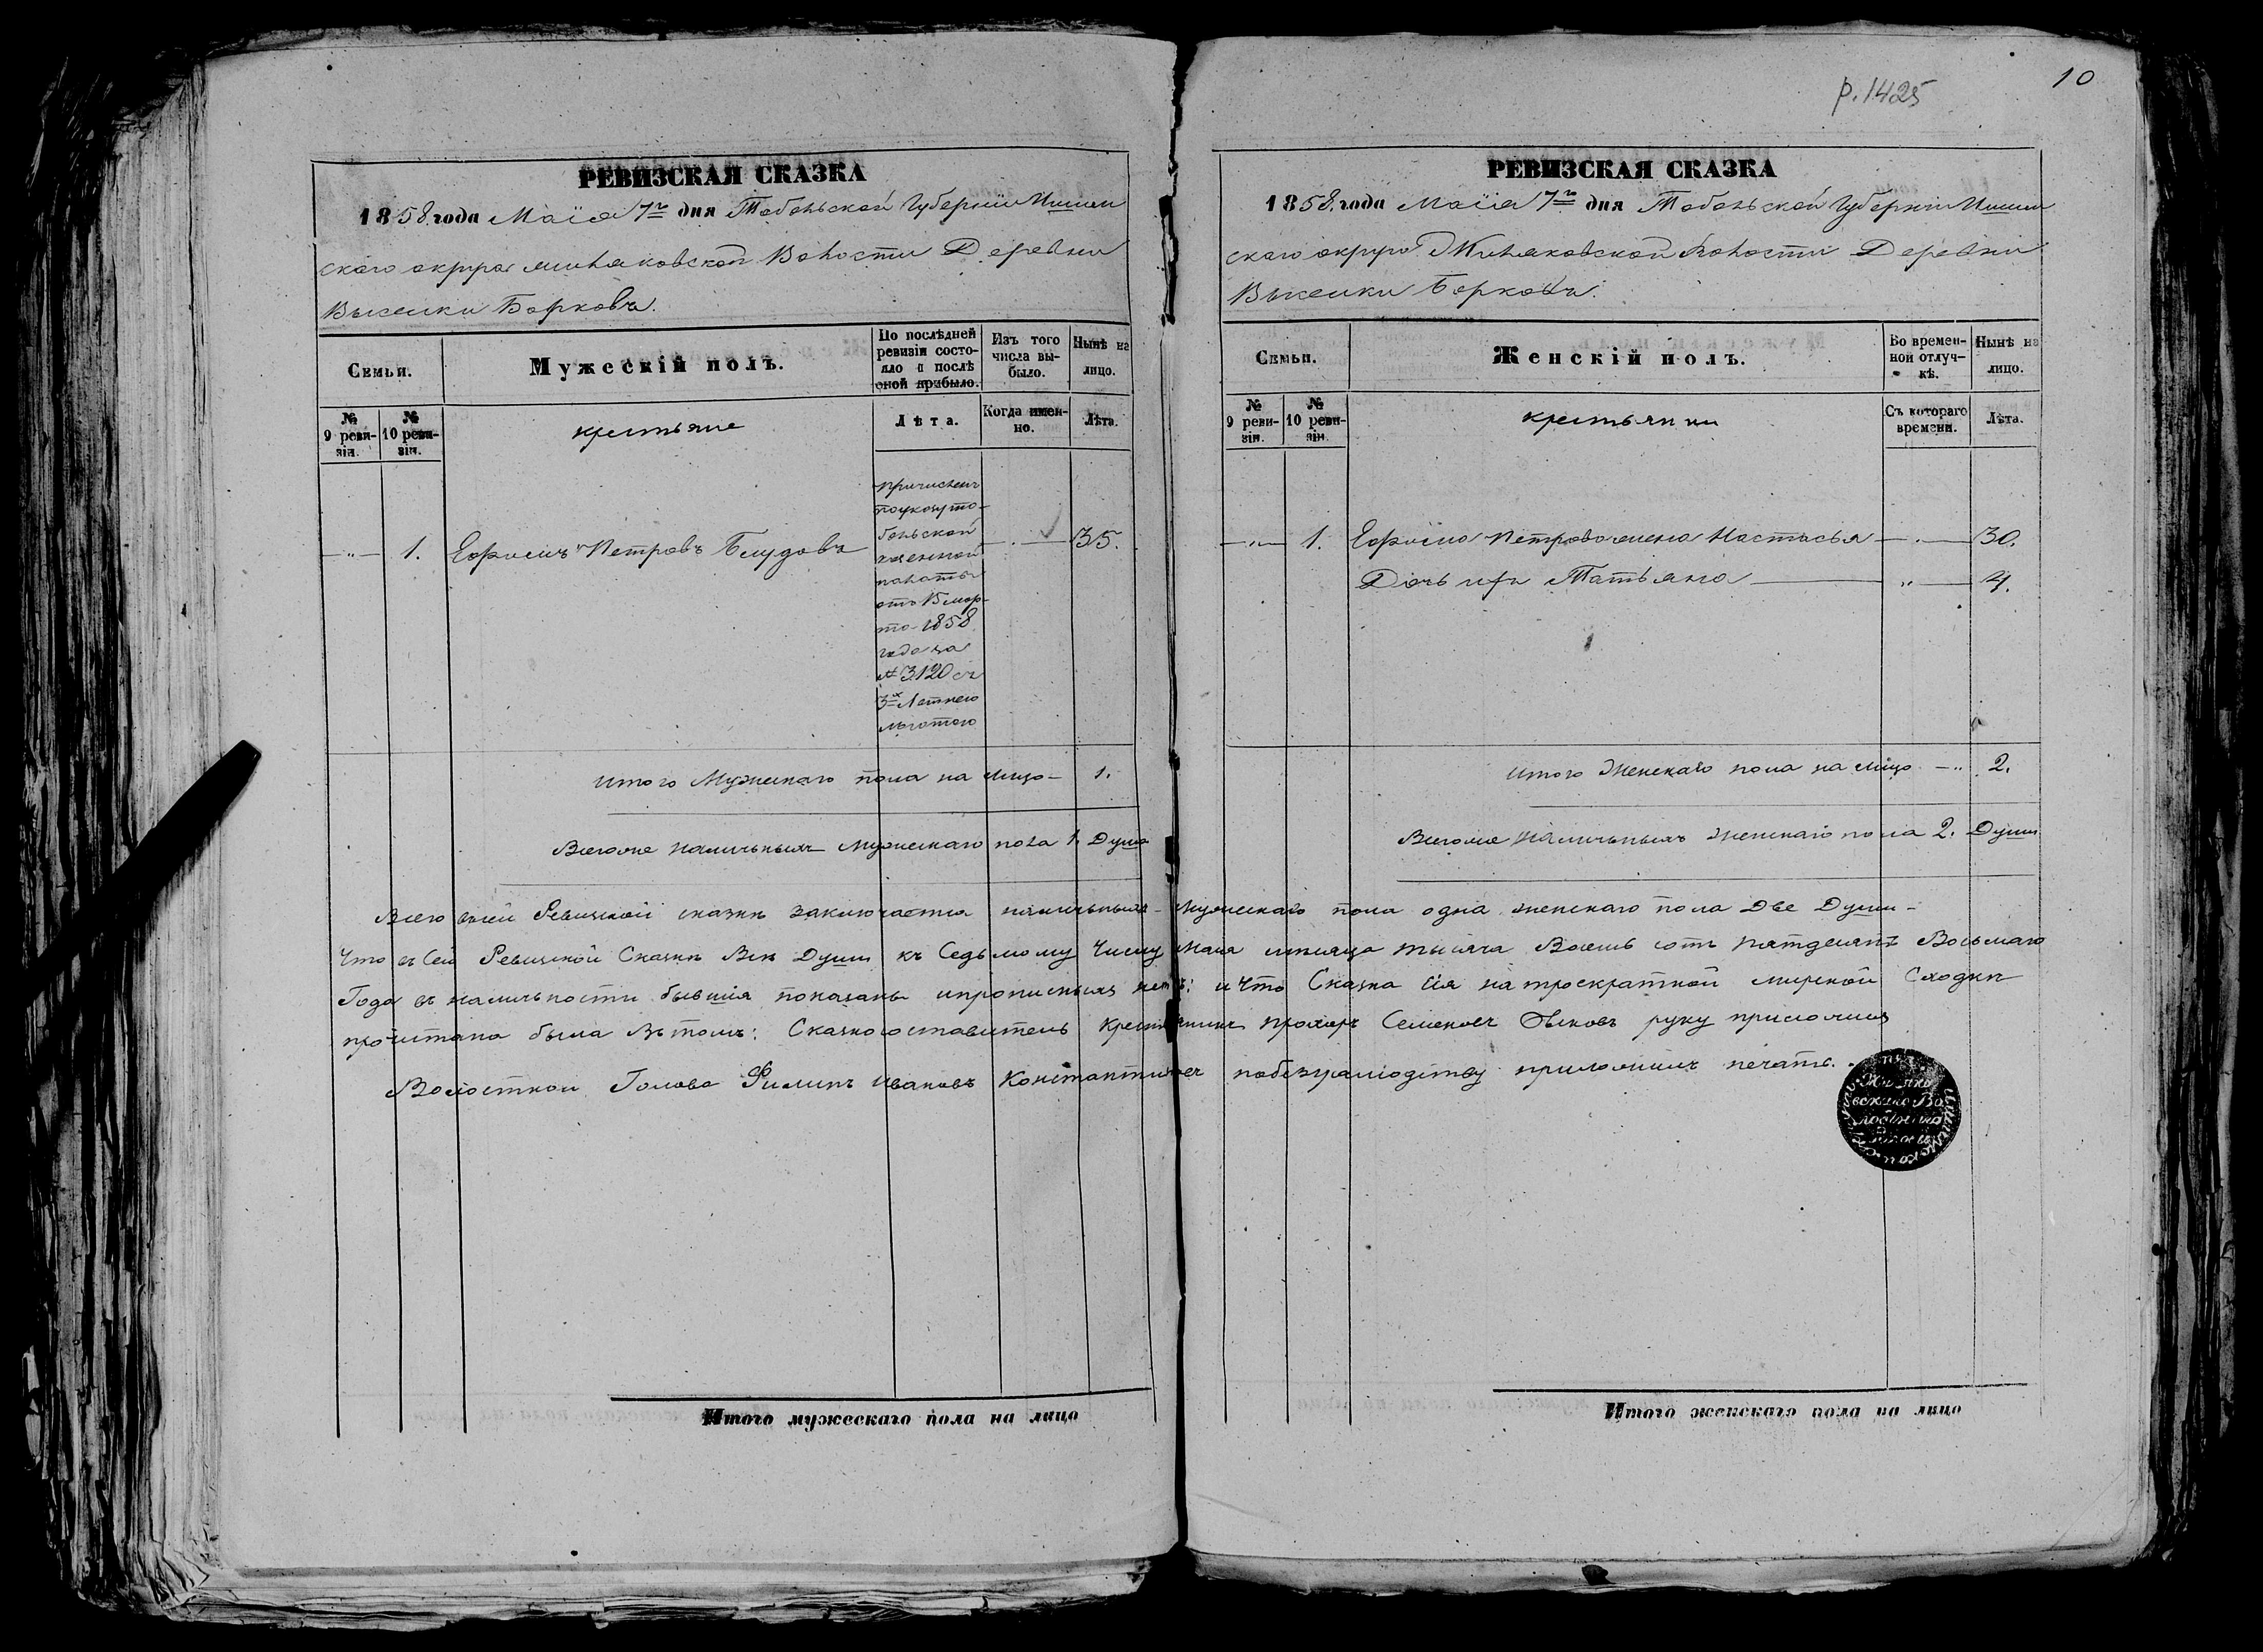 РЕВИЗСКАЯ СКАЗКА
1858 года Маія 7го дня Тобольской Губерніи Ишим
скаго округа Жиляковской Волости Деревни
Выселки Борковъ.
Семьи.
Мужескій полъ.
По послѣдней ревизіи состояло и послѣ оной прибыло.
Изъ того числа выбыло.
Нынѣ на лицо.
№ 9 ревизіи.
№ 10 ревизіи.
крестьяне
Лѣта.
Когда именно.
Лѣта.
—"— 1. Ефимъ Петровъ Блудовъ — . — 35.
причисленъ
поуказу то-
больской
казенной
палаты
отъ 15 мар-
та 1858
года за
№ 3120 съ
3х Летнею
льготою
итого Мужескаго пола на лицо — 1.
Всегоже наличныхъ мужескаго пола 1. Душа
РЕВИЗСКАЯ СКАЗКА
р. 1425
10
1858. года Маія 7го дня Тобольской Губерніи Ишим
скаго округа Жиляковской Волости Деревни
Выселки Борковъ.
Семьи.
Женскій полъ.
Во временной отлучкѣ.
Нынѣ на лицо.
№ 9 ревизіи.
№ 10 ревизіи.
крестьянки
Съ котораго времени.
Лѣта.
—"— 1. Ефима Петрова жена Настасья — . — 30.
Дочь ихъ Татьяна — " — 4.
итого Женскаго пола на лицо — " 2.
Всегоже наличныхъ женскаго пола 2. Души
Всего въсей Ревизской сказкѣ заключается наличныхъ мужескаго пола одна женскаго пола Две Души —
Что въ Сей Ревизской Сказкѣ Всѣ Души къ Седьмому Числу Мая месяца тысяча Восемь сотъ пятдесятъ Восьмаго
Года въ наличности бывшія показаны ипрописныхъ нетъ: и что Сказка сія на троекратной мирской Сходкѣ
прочитана была Вътомъ: Сказкосоставитель Крестьянинъ Прохоръ Семеновъ руку приложилъ
Волостной Голова Филипъ Ивановъ Константиновъ побезграмотству приложилъ печать.
Итого мужескаго пола на лицо
Итого женскаго пола на лицо